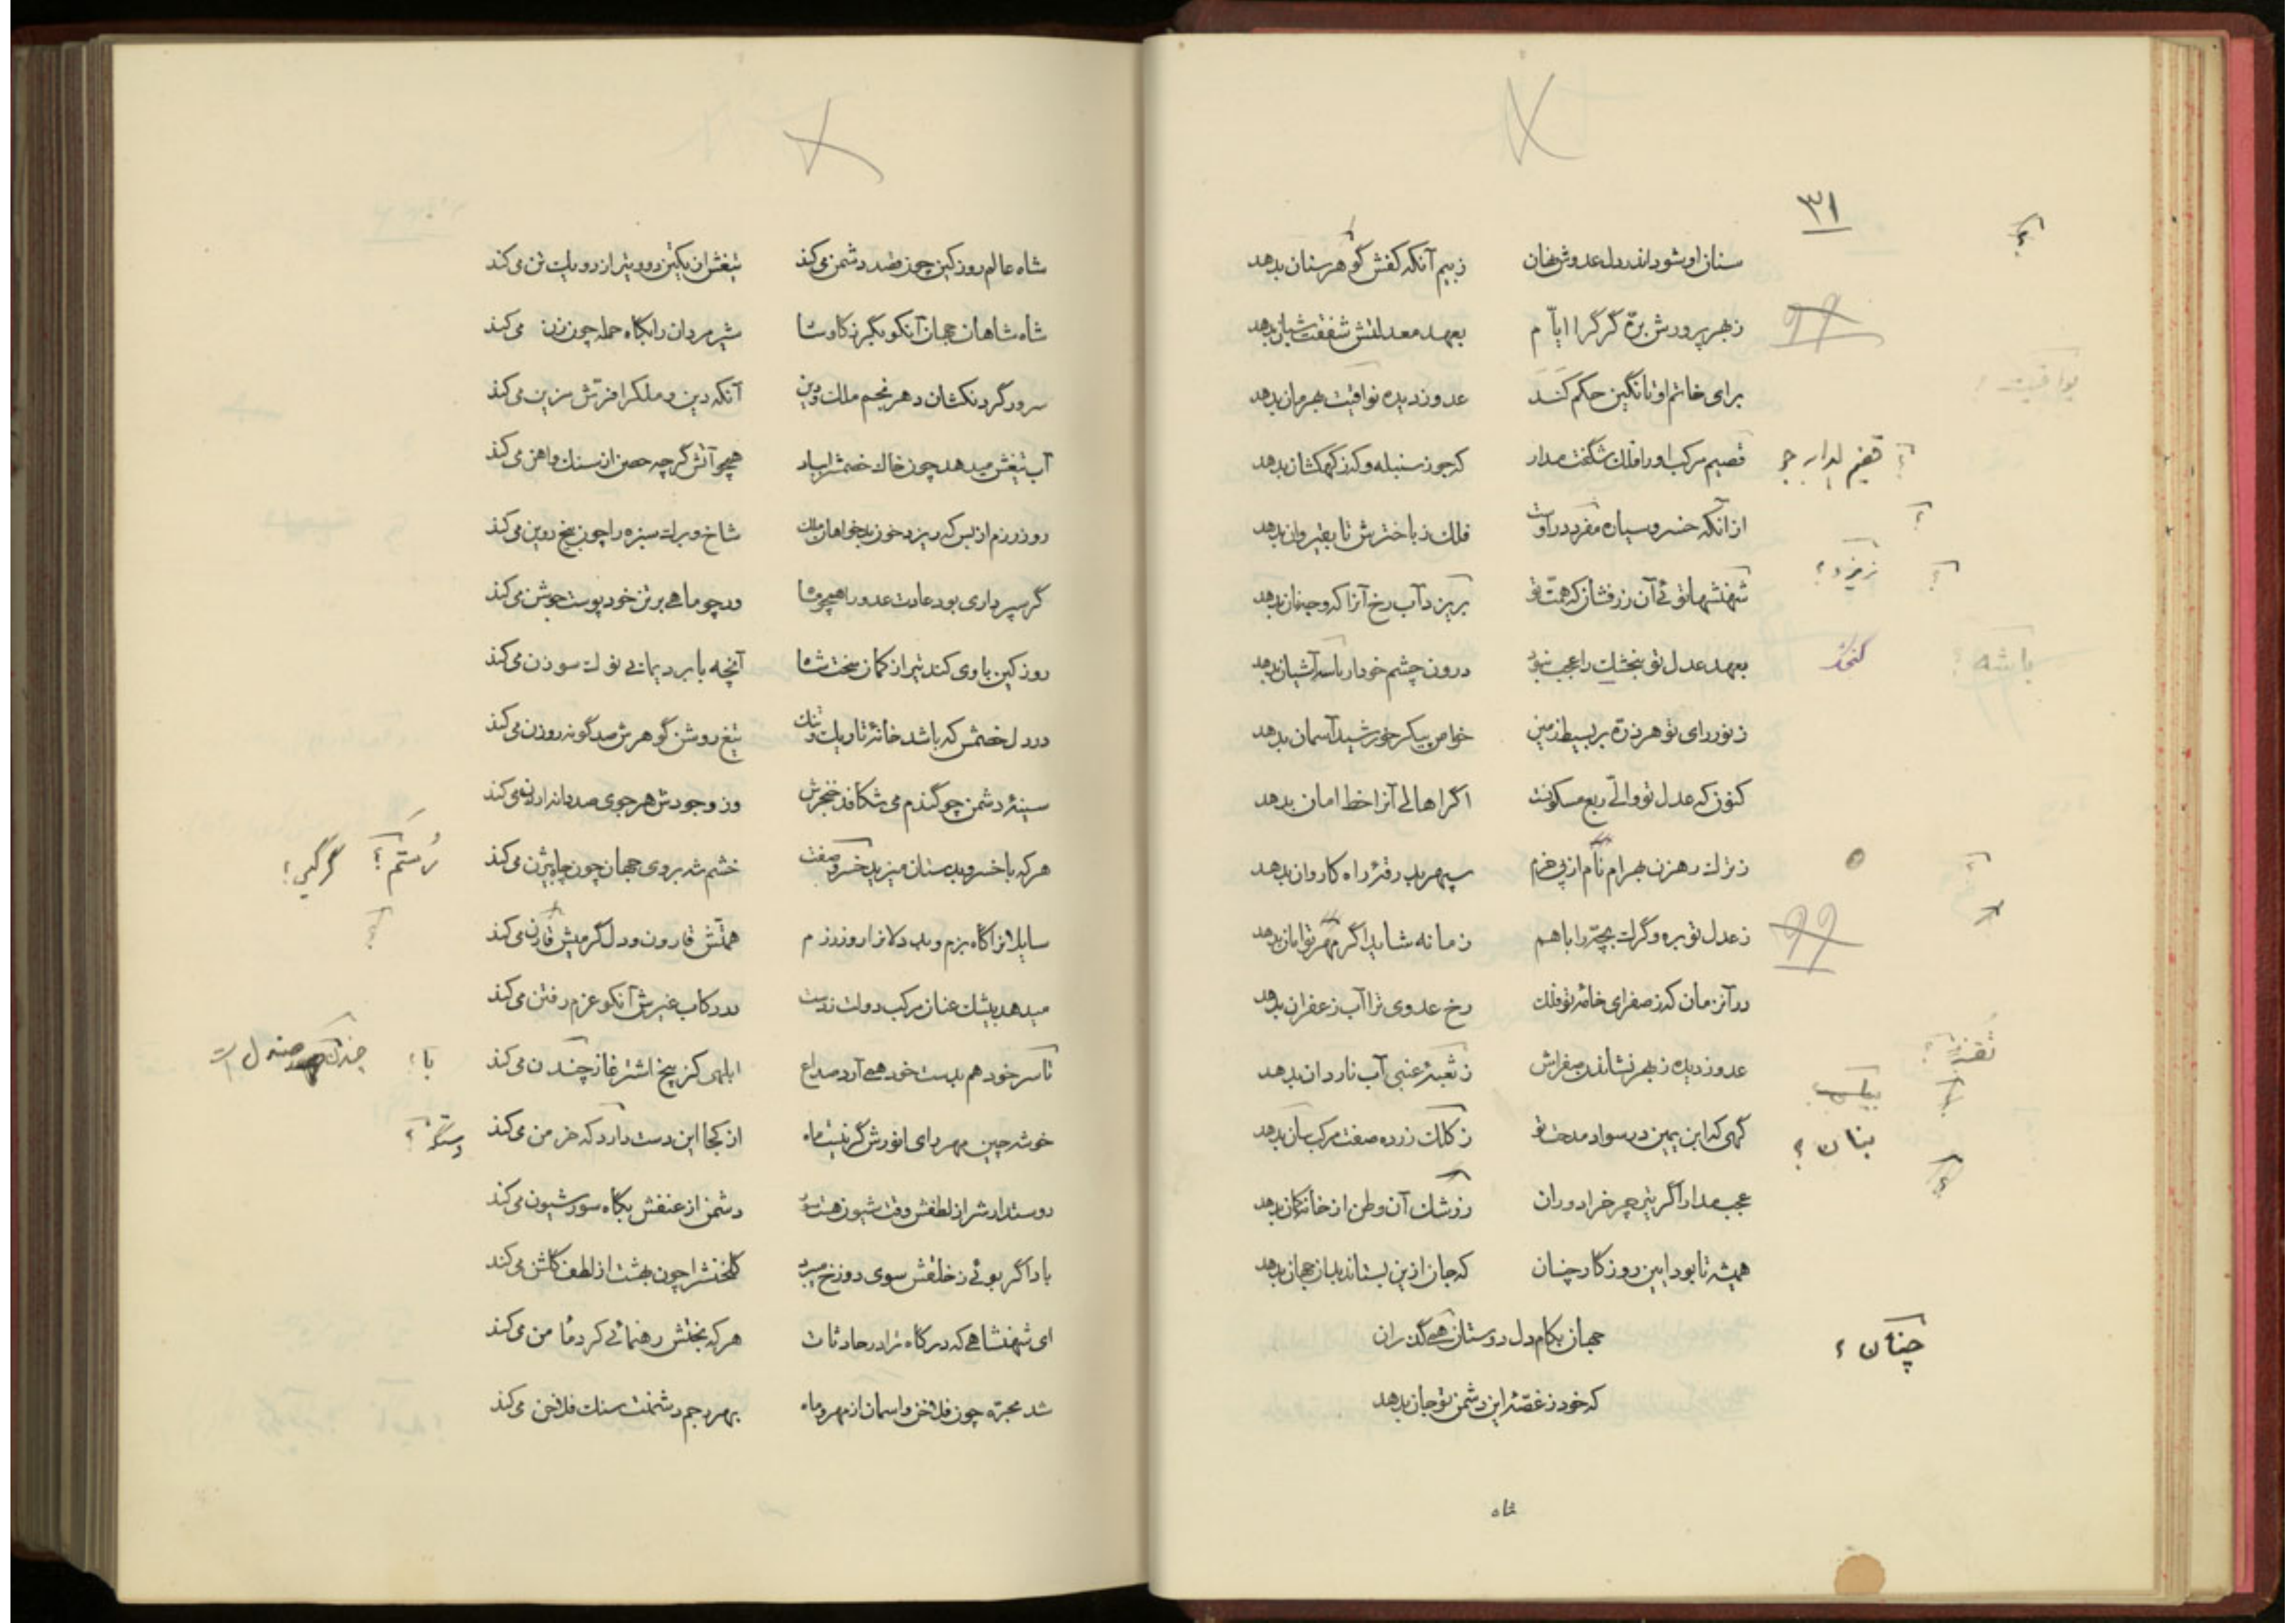 ۳۱
سنان او شود اندر دل عدوش نهان زبیم آنکه کفش گوهر سنان بدهد
زبهر پرورش بره گرگ را ایام بعهد معدلتش شفقت شبان بدهد
برای خاتم او تا نگین حکم کند عدو ز دیده یواقیت بهرمان بدهد
قضیم مرکب او را فلک شگفت مدار که جوز سنبله و که ز کهکشان بدهد
از آنکه خسرو سیاره مفرد در اوست فلک ز باخترش تا بقیروان بدهد
شهنشها توئی آن زرفشان که همت تو بریزد آب رخ آنرا که وجه نان بدهد
بعهد عدل تو بنجشک را عجب نبود درون چشم خود ار باشه آشیان بدهد
ز نور رای تو هر ذره بر بسیط زمین خواص پیکر خورشید آسمان بدهد
کنون که عدل تو والی ربع مسکونست اگر اهالی آنرا خط امان بدهد
ز ترک رهزن بهرام نام از پی حزم سپهر بدرقهٔ راه کاروان بدهد
ز عدل تو بره و گرگ بچه را با هم زمانه شاید اگر مهر توامان بدهد
در آنزمان که ز صفرای خامهٔ تو فلک رخ عدوی ترا آب زعفران بدهد
عدو ز دیده ز بهر نشاندن صفراش عنبی آب ناردان بدهد
گهی که ابن یمین در سواد مدحت تو ز کلک زرده صفت مرکب بیان بدهد
عجب مدار اگر تیر چرخ را دوران ز رشک آن وطن از خانه کمان بدهد
همیشه تا بود این روزگار چنان که جان ازین بستاند بدان جهان بدهد
جهان بکام دل دوستان همی گذران
که خود ز غصهٔ این دشمن تو جان بدهد
شاه
یواقیت ؟
قضیم
بریزد ؟
باشه ؟
بنان ؟
چنانک ؟
شاه عالم روز کین چون قصد دشمن می کند تیغش از یکتن دو و تیر از دو یک تن می کند
شاه شاهان جهان آنکو بگرز گاوسا شیر مردان را بگاه حمله چون زن می کند
سرور گردنکشان دهر نجم ملک و دین آنکه دین و ملک را فرش مزین می کند
آب تیغش میدهد چون خاک خصمش را بباد همچو آتش گرچه حصن از سنگ و آهن می کند
روز رزم از بس که ریزد خون بدخواهان ملک شاخ و برگ سبزه را چون بیخ روین می کند
گر سپر داری بود عادت عدو را همچو ور چو ماهی بر تن خود پوست جوشن می کند
روز کین با وی کند تیر از کمان سخت شاه آنچه با برد یمانی نوک سوزن می کند
در دل خصمش که باشد خانهٔ تاریک و تنگ تیغ روشن گوهرش صد گونه روزن می کند
سینهٔ دشمن چو گندم می شکافد خنجرش وز وجودش هر جوی صد دانه ارزن می کند
هرکه با خسرو بدستان میزید خسرو صفت خشم شه بر وی جهان چون چاه بیژن می کند
سایلانرا گاه بزم و بد دلانرا روز رزم همتش قارون و دل گرمیش قارن می کند
میدهد بیشک عنان مرکب دولت ز دست در رکاب غیرش آنکو عزم رفتن می کند
تا سر خود هم بدست خود همی آرد صداع ابلهی کز بیخ اشترغاز چندن می کند
خوشه چین مهر رای انورش گر نیست ماه از کجا این دست دارد که خرمن می کند
دوستدارش را ز لطفش وقت شیون هست سور دشمن از عنفش بگاه سور شیون می کند
باد اگر بوئی ز خلقش سوی دوزخ میبرد گلخنش را چون بهشت از لطف گلشن می کند
ای شهنشاهی که درگاه ترا در حادثات هرکه بختش رهنمائی کرد مأمن می کند
شد مجره چون فلاخن و آسمان از مهر و ماه بهر رجم دشمنت سنگ فلاخن می کند
رستم ؟ گرگین ؟
با ؟